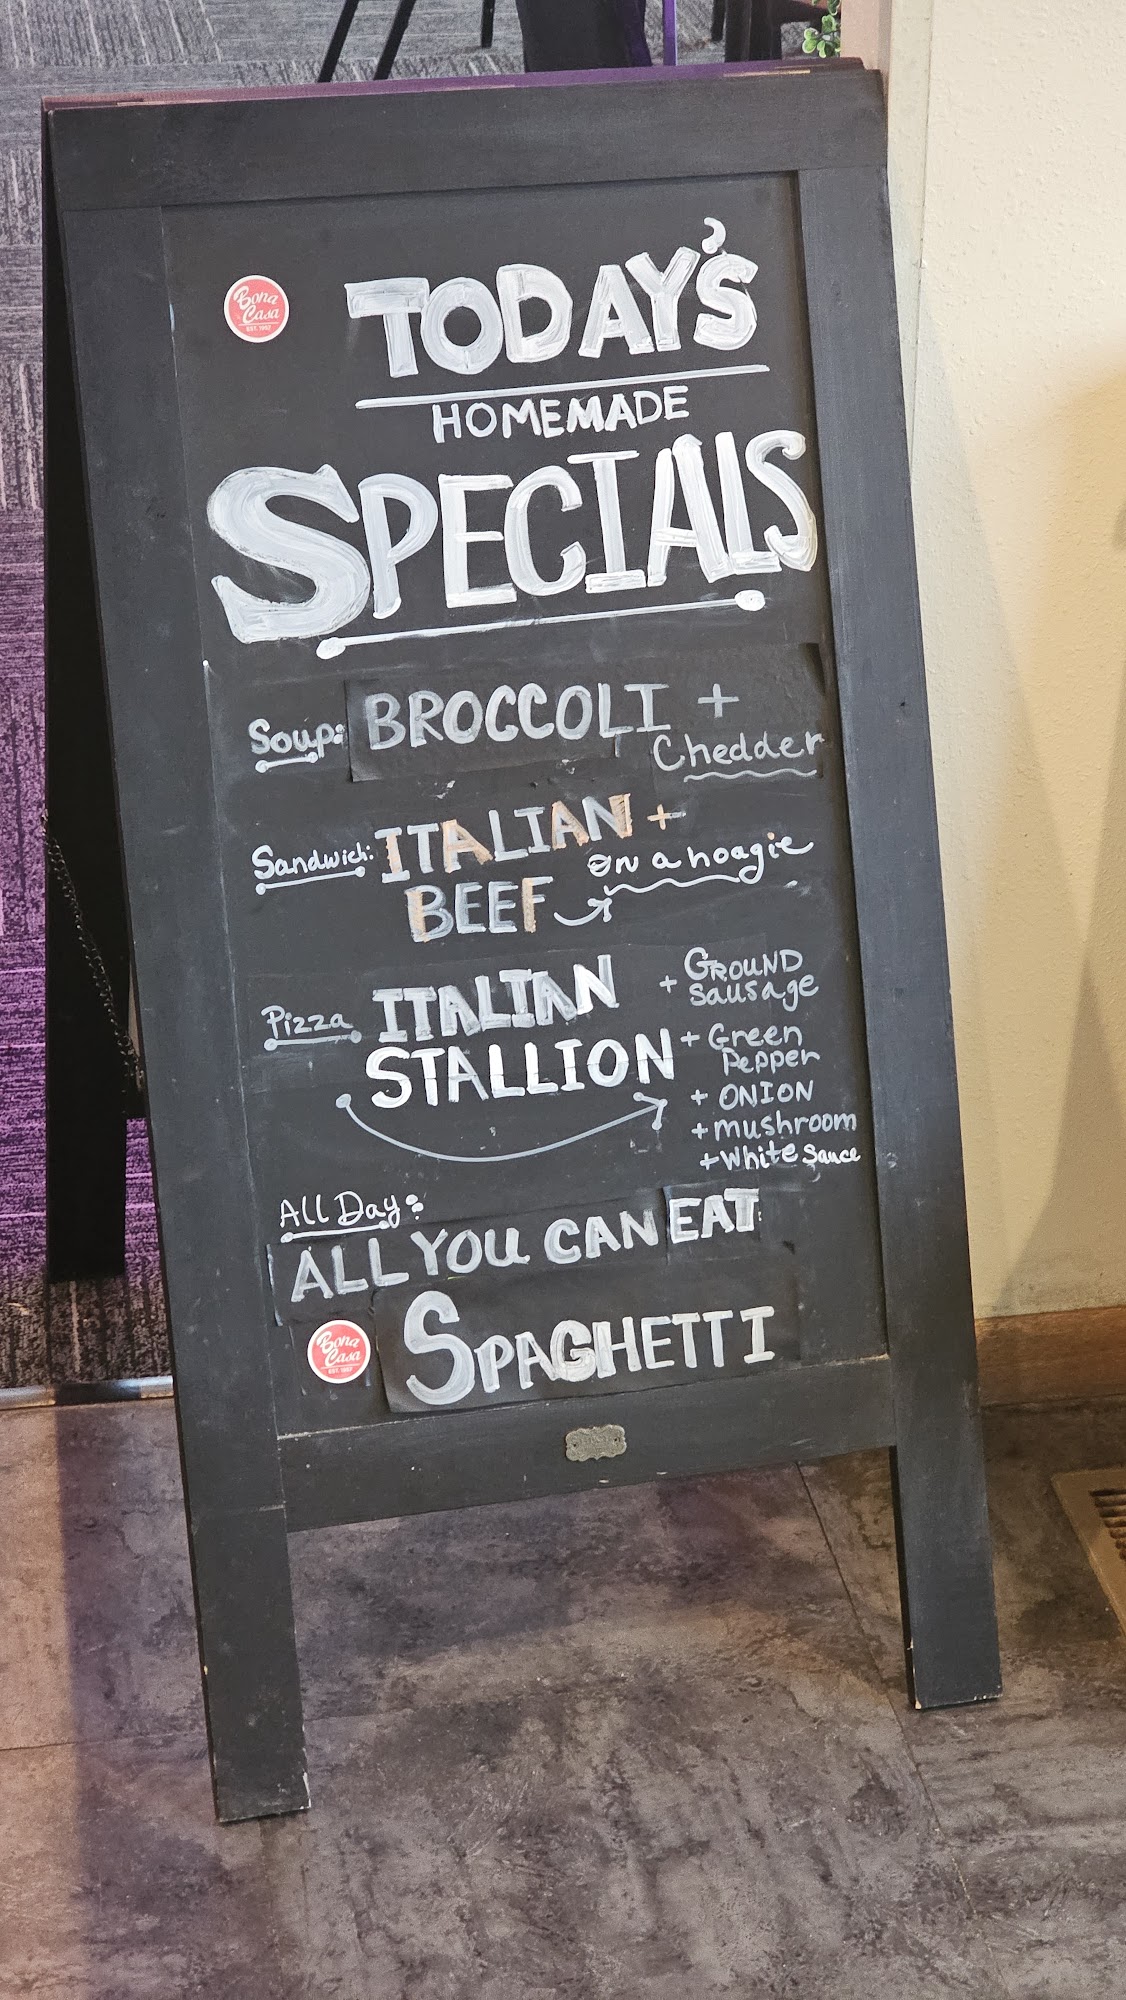 Bona
Casa
EST. 1967
TODAY'S
HOMEMADE
SPECIALS
Soup: BROCCOLI +
Chedder
Sandwich: ITALIAN +
BEEF on a hoagie
Pizza ITALIAN
STALLION
+ GROUND
Sausage
+ Green
Pepper
+ ONION
+ mushroom
+ White Sauce
All Day:
ALL YOU CAN EAT
SPAGHETTI
Bona
Casa
EST. 1967